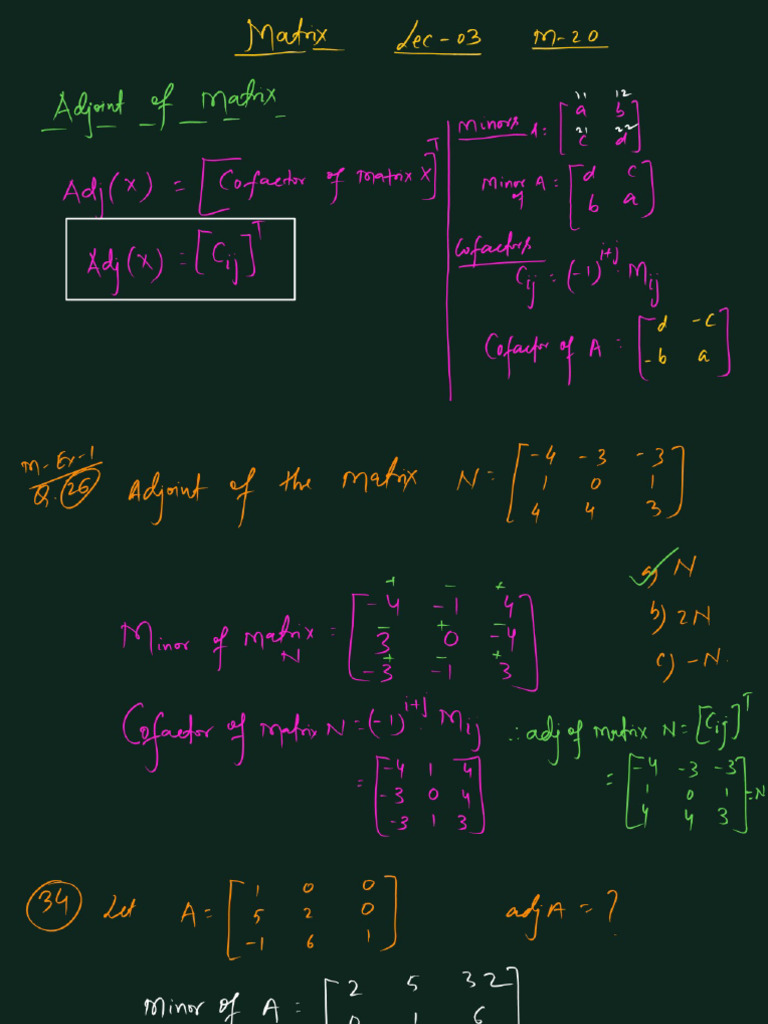 Matrix Lec-03 M-20
Adjoint of Matrix
Adj(X) = [Cofactor of matrix X]^T
Adj(X) = [C_ij]^T
Minors A: [a b
c d]
11 12
21 22
Minor of A: [d c
b a]
Cofactors
C_ij = (-1)^{i+j} . M_ij
Cofactor of A: [d -c
-b a]
M-Ex-1
Q. 26 Adjoint of the matrix N = [-4 -3 -3
1 0 1
4 4 3]
a) N
b) 2N
c) -N.
Minor of Matrix N = [-4 -1 4
3 0 -4
-3 -1 3]
+ - +
- + -
+ - +
Cofactor of matrix N = (-1)^{i+j} . M_ij
= [-4 1 4
-3 0 4
-3 1 3]
∴ adj of matrix N = [C_ij]^T
= [-4 -3 -3
1 0 1
4 4 3] = N
34 Let A = [1 0 0
5 2 0
-1 6 1] adj A = ?
Minor of A = [2 5 32
0 1 6